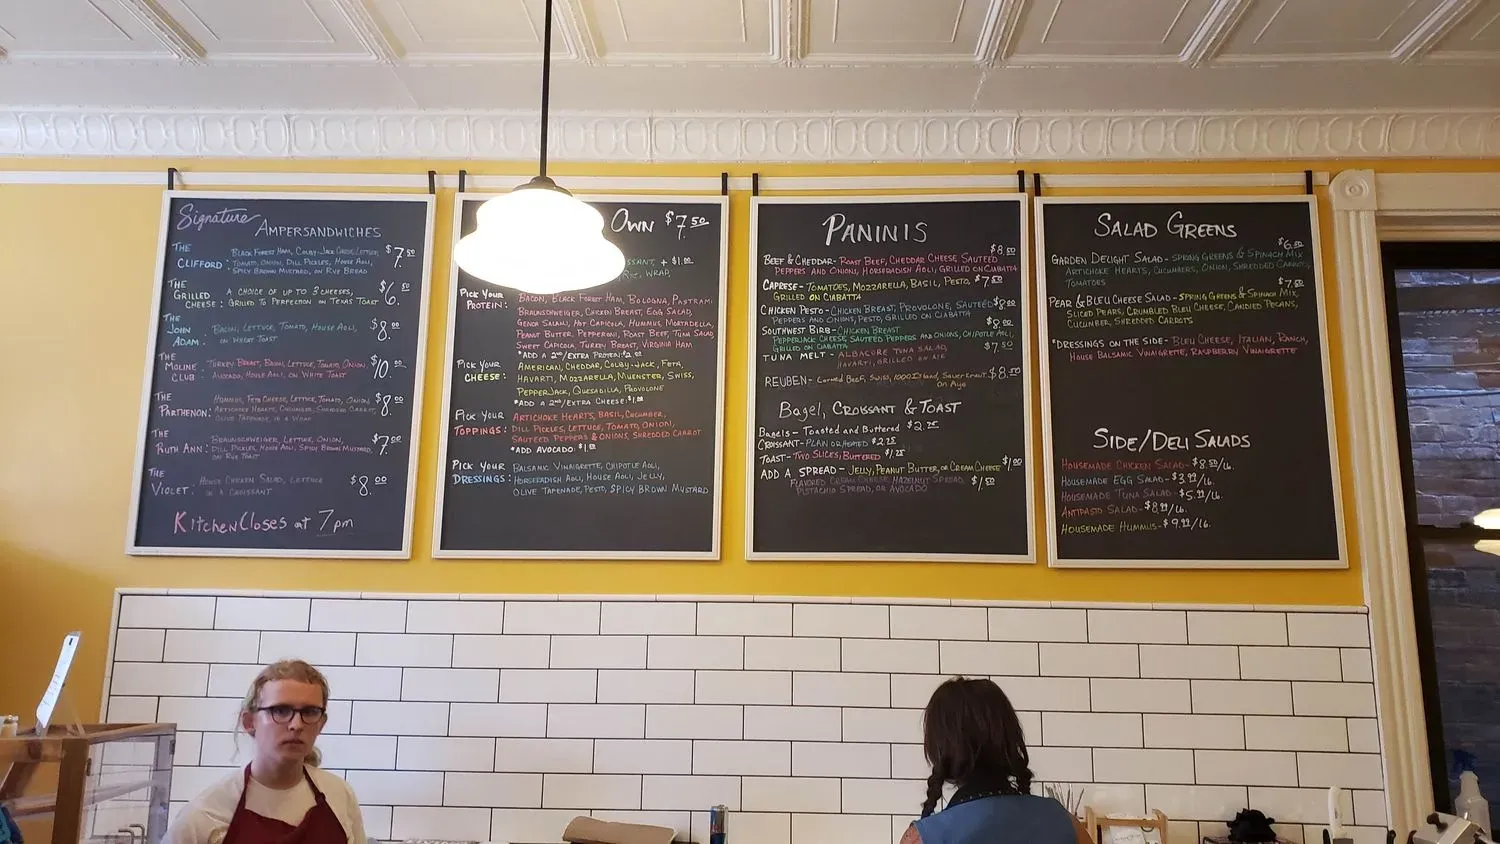 Signature
AMPERSANDWICHES
THE CLIFFORD: BLACK FOREST HAM, COLBY-JACK CHEESE, LETTUCE, $7.50
TOMATO, ONION, DILL PICKLES, HOUSE AOLI,
SPICY BROWN MUSTARD, ON RYE BREAD
THE GRILLED CHEESE: A CHOICE OF UP TO 3 CHEESES, $6.50
GRILLED TO PERFECTION ON TEXAS TOAST
THE JOHN ADAM: BACON, LETTUCE, TOMATO, HOUSE AOLI, $8.00
ON WHEAT TOAST
THE MOLINE CLUB: TURKEY BREAST, BACON, LETTUCE, TOMATO, ONION $10.00
AVOCADO, HOUSE AOLI, ON WHITE TOAST
THE PARTHENON: HUMMUS, FETA CHEESE, LETTUCE, TOMATO, ONION, $8.00
ARTICHOKE HEARTS, CUCUMBER, SHREDDED CARROT,
OLIVE TAPENADE, IN A WRAP
THE RUTH ANN: BRAUNSCHWEIGER, LETTUCE, ONION, $7.50
DILL PICKLES, HOUSE AOLI, SPICY BROWN MUSTARD,
ON RYE TOAST
THE VIOLET: HOUSE CHICKEN SALAD, LETTUCE $8.00
ON A CROISSANT
KITCHEN CLOSES AT 7pm
OWN $7.50
+ $1.00
WRAP,
PICK YOUR PROTEIN: BACON, BLACK FOREST HAM, BOLOGNA, PASTRAMI
BRAUNSCHWEIGER, CHICKEN BREAST, EGG SALAD,
GENOA SALAMI, HOT CAPICOLA, HUMMUS, MORTADELLA,
PEANUT BUTTER, PEPPERONI, ROAST BEEF, TUNA SALAD,
SWEET CAPICOLA, TURKEY BREAST, VIRGINIA HAM
*ADD A 2nd/EXTRA PROTEIN: $2.00
PICK YOUR CHEESE: AMERICAN, CHEDDAR, COLBY-JACK, FETA,
HAVARTI, MOZZARELLA, MUENSTER, SWISS,
PEPPERJACK, QUESADILLA, PROVOLONE
*ADD A 2nd/EXTRA CHEESE: $1.00
PICK YOUR TOPPINGS: ARTICHOKE HEARTS, BASIL, CUCUMBER,
DILL PICKLES, LETTUCE, TOMATO, ONION,
SAUTEED PEPPERS & ONIONS, SHREDDED CARROT
*ADD AVOCADO: $1.50
PICK YOUR DRESSINGS: BALSAMIC VINAIGRETTE, CHIPOTLE AOLI,
HORSERADISH AOLI, HOUSE AOLI, JELLY,
OLIVE TAPENADE, PESTO, SPICY BROWN MUSTARD
PANINIS
BEEF & CHEDDAR- ROAST BEEF, CHEDDAR CHEESE SAUTEED $8.50
PEPPERS AND ONION, HORSERADISH AOLI, GRILLED ON CIABATTA
CAPRESE- TOMATOES, MOZZARELLA, BASIL, PESTO, $7.50
GRILLED ON CIABATTA
CHICKEN PESTO- CHICKEN BREAST, PROVOLONE, SAUTEED $8.00
PEPPERS AND ONIONS, PESTO, GRILLED ON CIABATTA
SOUTHWEST BIRB- CHICKEN BREAST $8.00
PEPPERJACK CHEESE, SAUTEED PEPPERS AND ONIONS, CHIPOTLE AOLI,
GRILLED ON CIABATTA
TUNA MELT- ALBACORE TUNA SALAD, $7.50
HAVARTI, GRILLED ON RYE
REUBEN- Corned Beef, Swiss, 1000 Island, Sauerkraut $8.50
on Rye
Bagel, CROISSANT & TOAST
Bagels- Toasted and Buttered $2.25
CROISSANT- PLAIN OR HEATED $2.75
TOAST- TWO SLICES, BUTTERED $1.25
ADD A SPREAD- JELLY, PEANUT BUTTER, OR CREAM CHEESE $1.00
FLAVORED CREAM CHEESE, HAZELNUT SPREAD, $1.50
PISTACHIO SPREAD, OR AVOCADO
SALAD GREENS
GARDEN DELIGHT SALAD- SPRING GREENS & SPINACH MIX $6.50
ARTICHOKE HEARTS, CUCUMBERS, ONION, SHREDDED CARROTS,
TOMATOES
PEAR & BLEU CHEESE SALAD- SPRING GREENS & SPINACH MIX, $7.50
SLICED PEARS, CRUMBLED BLEU CHEESE, CANDIED PECANS,
CUCUMBER, SHREDDED CARROTS
*DRESSINGS ON THE SIDE- BLEU CHEESE, ITALIAN, RANCH,
HOUSE BALSAMIC VINAIGRETTE, RASPBERRY VINAIGRETTE
SIDE/DELI SALADS
HOUSEMADE CHICKEN SALAD- $8.50/lb.
HOUSEMADE EGG SALAD- $3.99/lb.
HOUSEMADE TUNA SALAD- $5.99/lb.
ANTIPASTO SALAD- $8.99/lb.
HOUSEMADE HUMMUS- $9.99/lb.